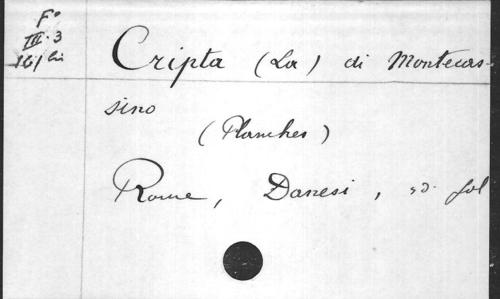 F°
III.3
Cripta (La) di Montecas-
sino
(Planches)
Rome, Danesi, sd. fol